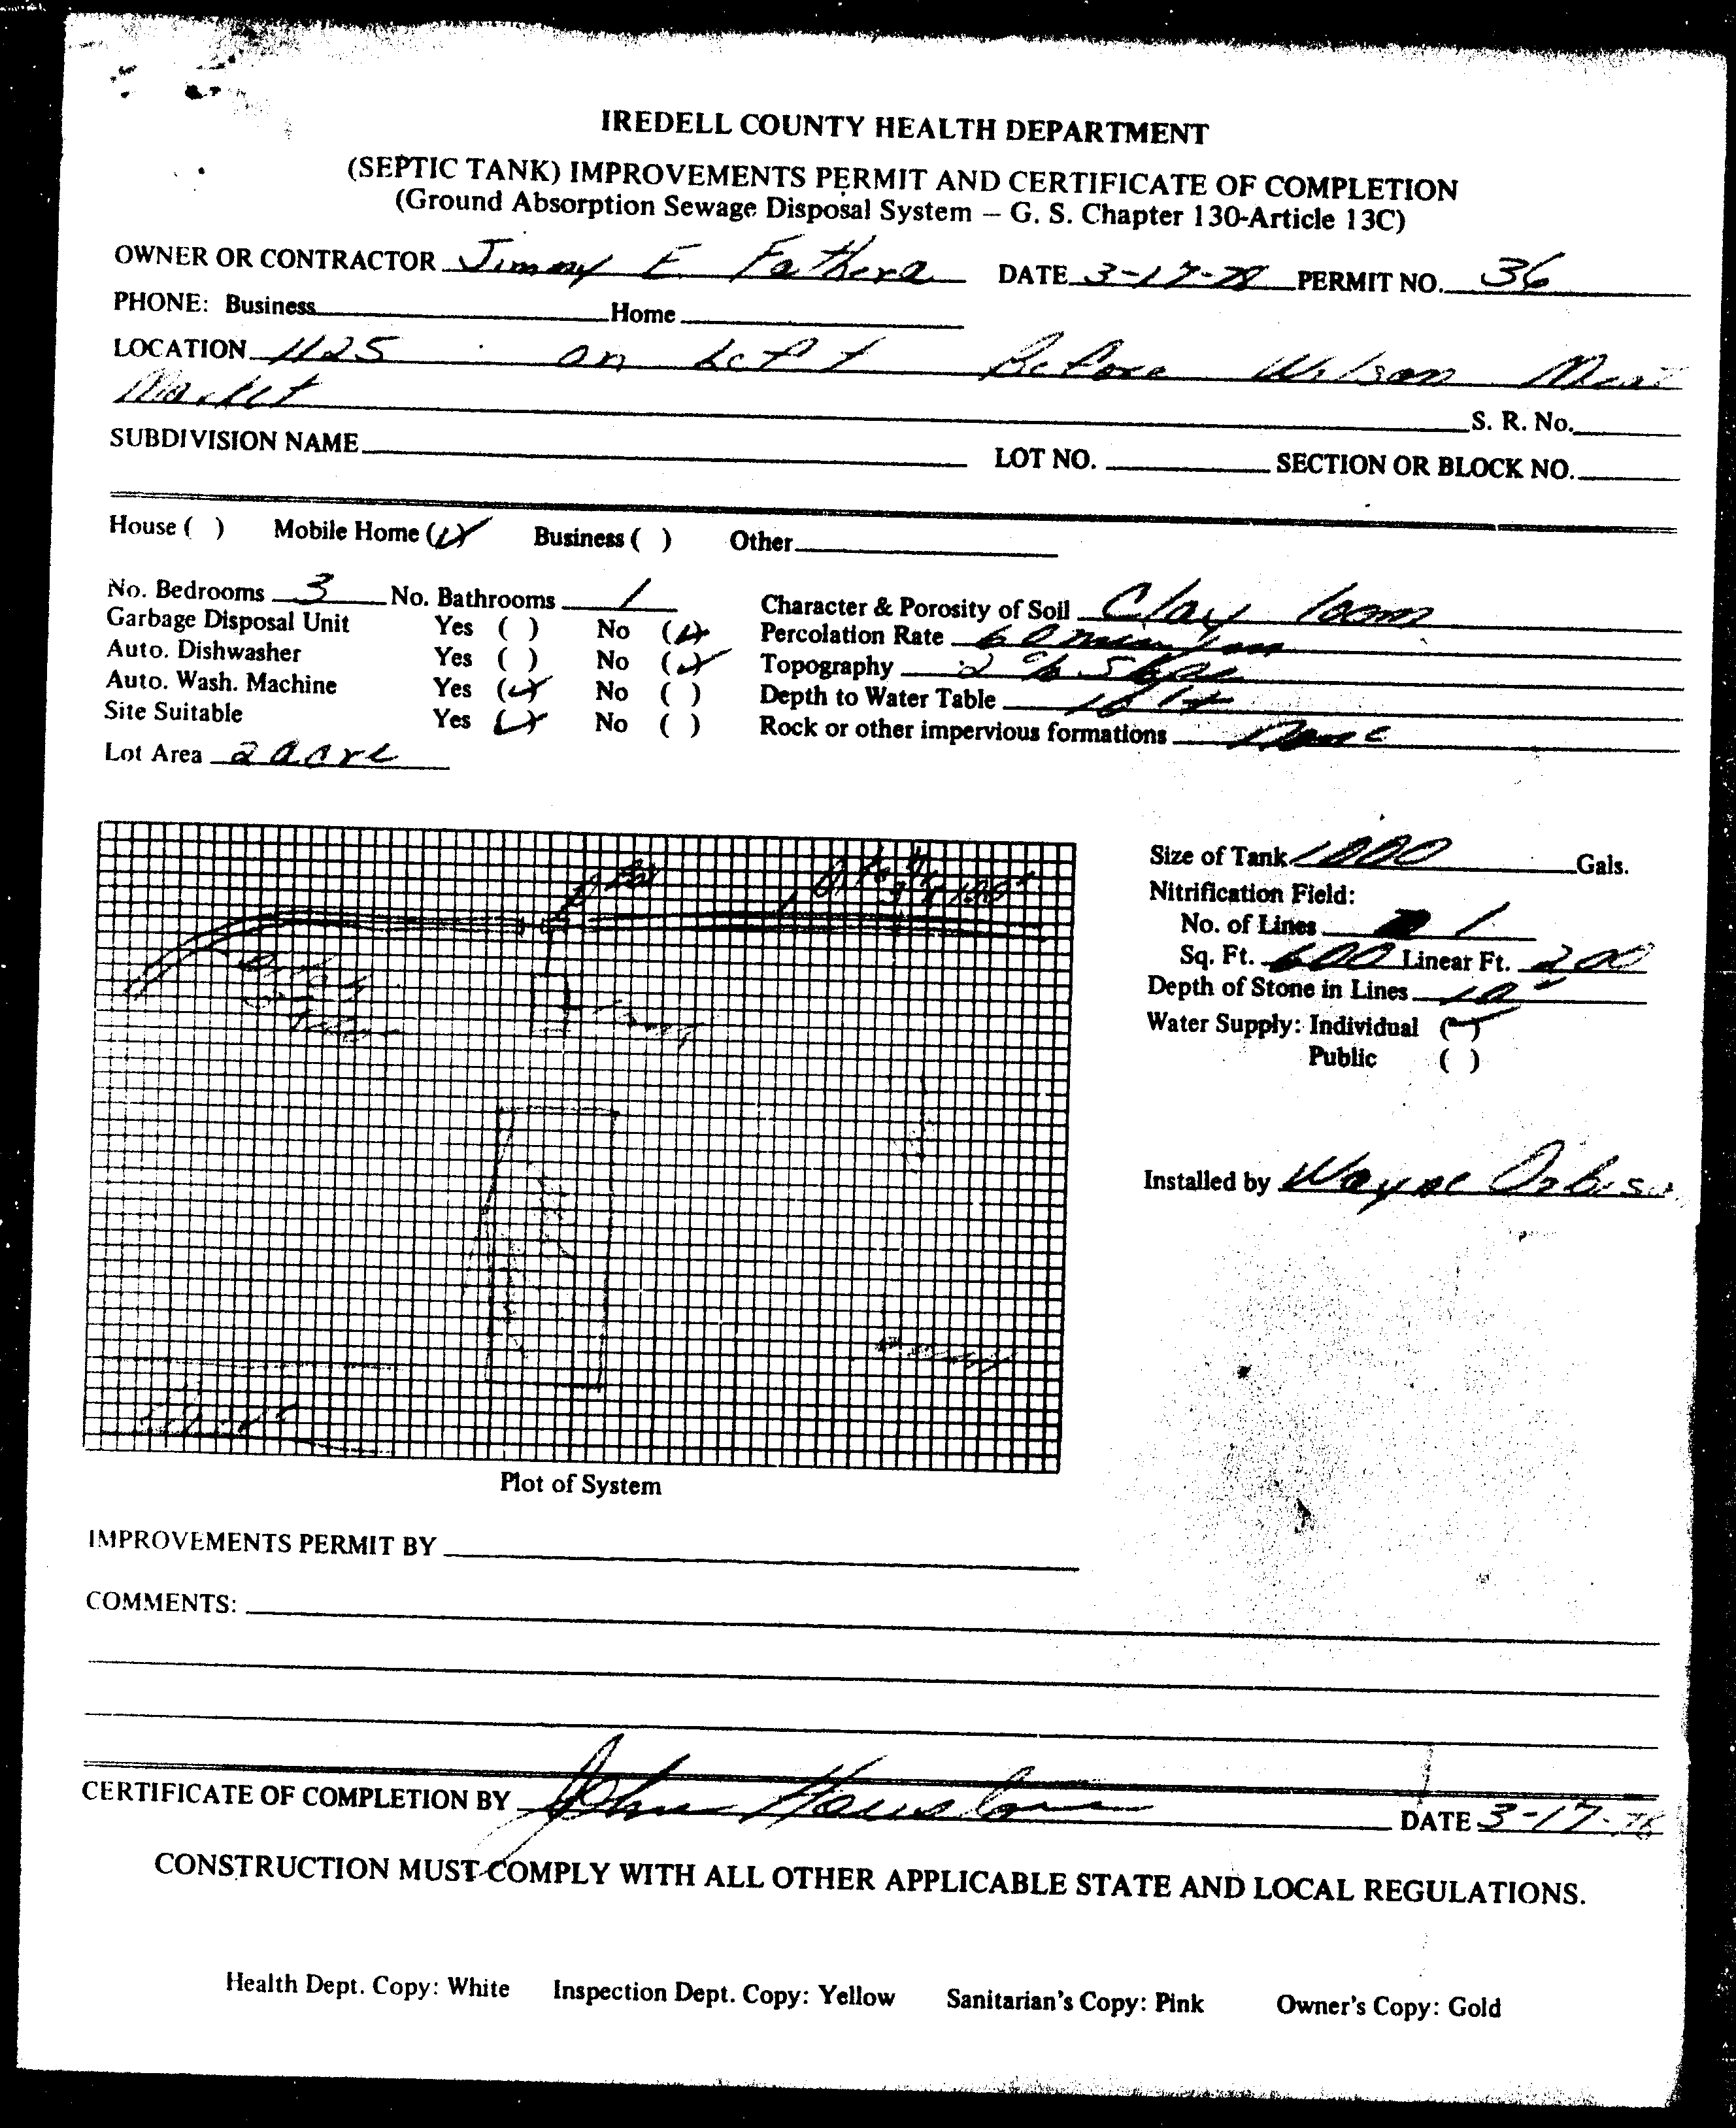 IREDELL COUNTY HEALTH DEPARTMENT
(SEPTIC TANK) IMPROVEMENTS PERMIT AND CERTIFICATE OF COMPLETION
(Ground Absorption Sewage Disposal System – G. S. Chapter 130-Article 13C)
OWNER OR CONTRACTOR Jimmy E. DATE 3-17-78 PERMIT NO. 36
PHONE: Business Home
LOCATION 1125 on Left Before Wilson Meat
Market
S. R. No.
SUBDIVISION NAME LOT NO. SECTION OR BLOCK NO.
House ( ) Mobile Home (✓) Business ( ) Other
No. Bedrooms 3 No. Bathrooms 1 Character & Porosity of Soil Clay loam
Garbage Disposal Unit Yes ( ) No (✓) Percolation Rate 60
Auto. Dishwasher Yes ( ) No (✓) Topography 2 % Slope
Auto. Wash. Machine Yes (✓) No ( ) Depth to Water Table
Site Suitable Yes (✓) No ( ) Rock or other impervious formations None
Lot Area 2 acre
Size of Tank 1000 Gals.
Nitrification Field:
No. of Lines 1
Sq. Ft. 600 Linear Ft. 200
Depth of Stone in Lines
Water Supply: Individual (✓)
Public ( )
Installed by Wayne
Plot of System
IMPROVEMENTS PERMIT BY
COMMENTS:
CERTIFICATE OF COMPLETION BY John DATE 3-17-
CONSTRUCTION MUST COMPLY WITH ALL OTHER APPLICABLE STATE AND LOCAL REGULATIONS.
Health Dept. Copy: White Inspection Dept. Copy: Yellow Sanitarian's Copy: Pink Owner's Copy: Gold